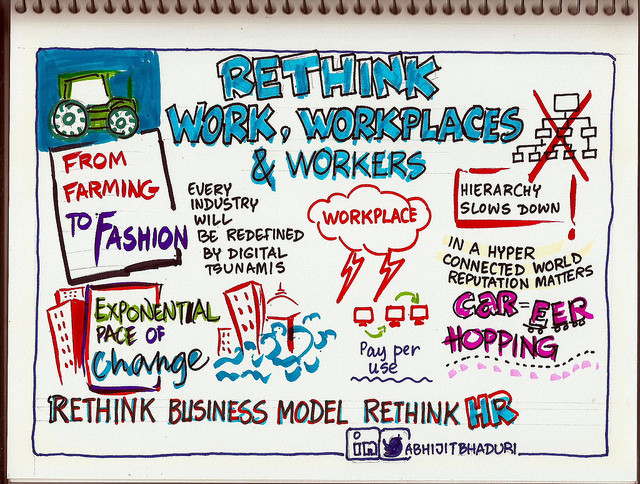 RETHINK
WORK, WORKPLACES
& WORKERS
FROM
FARMING
TO FASHION
EVERY
INDUSTRY
WILL
BE REDEFINED
BY DIGITAL
TSUNAMIS
WORKPLACE
HIERARCHY
SLOWS DOWN
!
IN A HYPER
CONNECTED WORLD
REPUTATION MATTERS
EXPONENTIAL
PACE OF
change
Pay per
use
CaR=EER
HOPPING
RETHINK BUSINESS MODEL RETHINK HR
in ABHIJITBHADURI